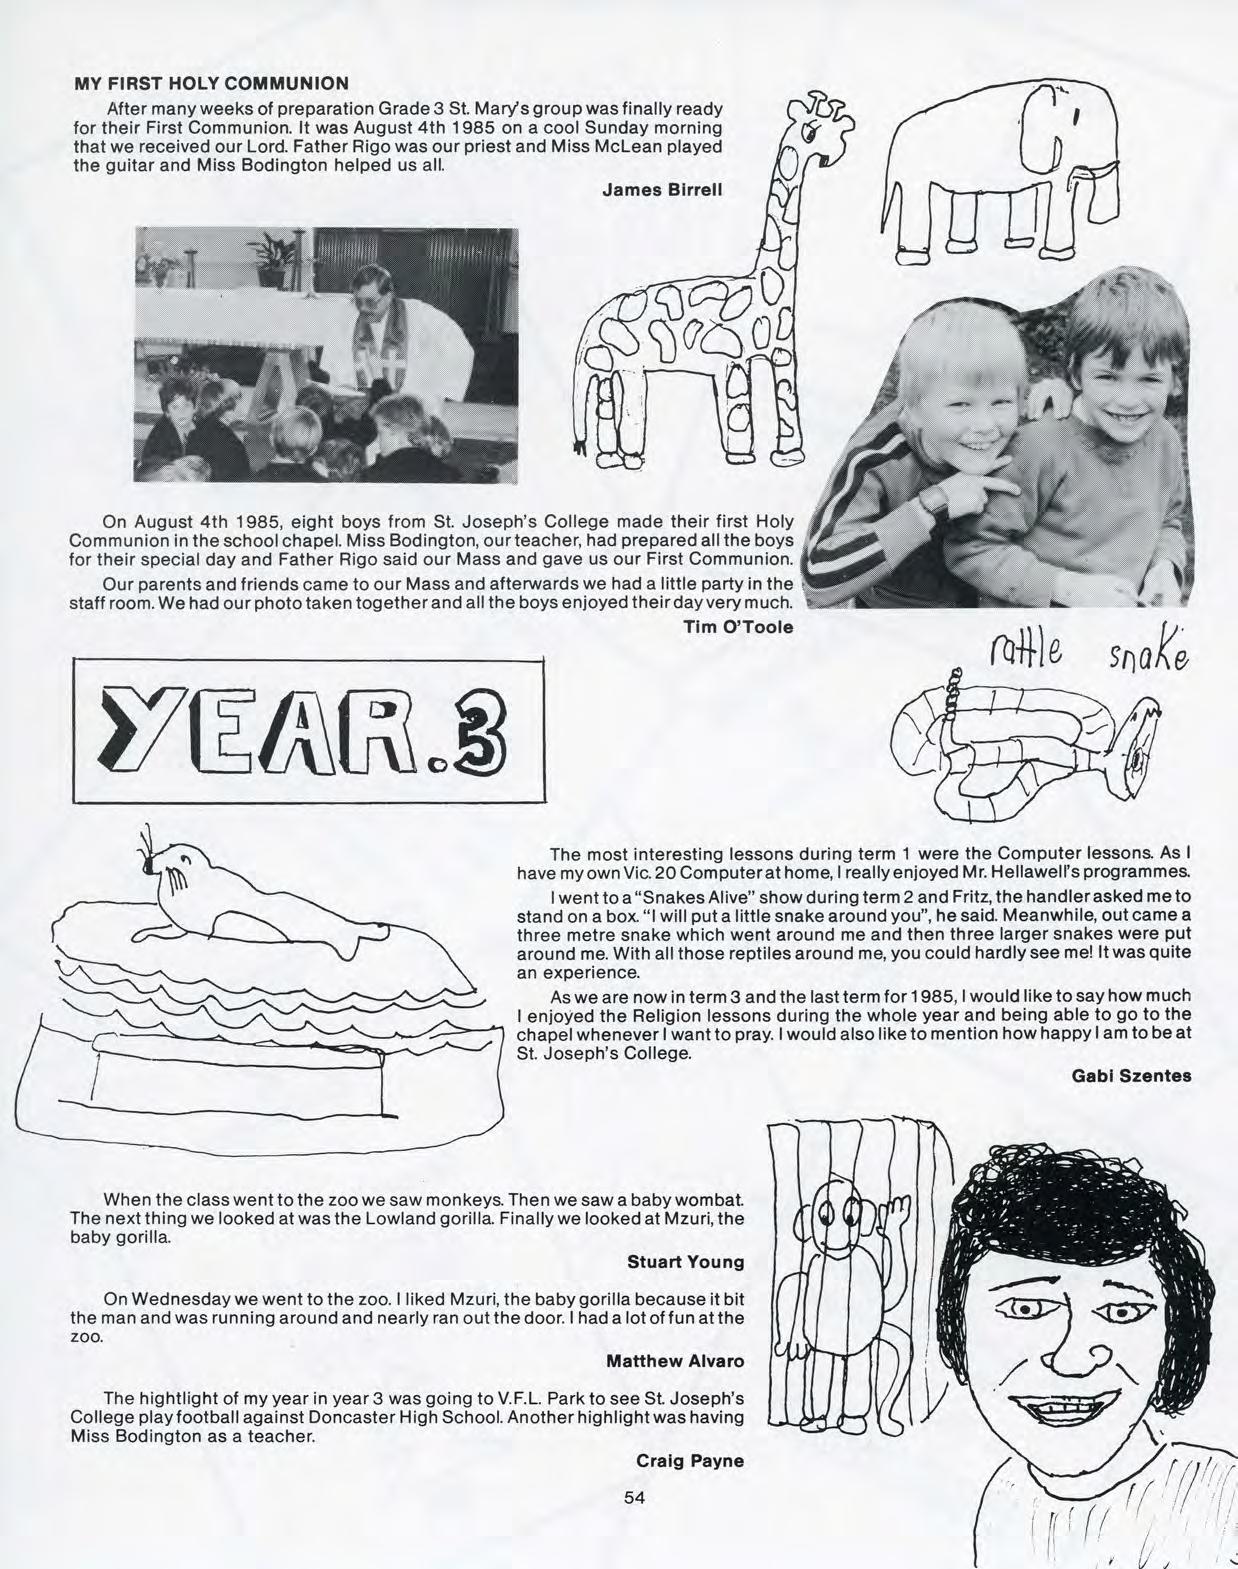 MY FIRST HOLY COMMUNION
After many weeks of preparation Grade 3 St. Mary's group was finally ready
for their First Communion. It was August 4th 1985 on a cool Sunday morning
that we received our Lord. Father Rigo was our priest and Miss McLean played
the guitar and Miss Bodington helped us all.
James Birrell
On August 4th 1985, eight boys from St. Joseph's College made their first Holy
Communion in the school chapel. Miss Bodington, our teacher, had prepared all the boys
for their special day and Father Rigo said our Mass and gave us our First Communion.
Our parents and friends came to our Mass and afterwards we had a little party in the
staff room. We had our photo taken together and all the boys enjoyed their day very much.
Tim O'Toole
rattle snake
YEAR.3
The most interesting lessons during term 1 were the Computer lessons. As I
have my own Vic. 20 Computer at home, I really enjoyed Mr. Hellawell's programmes.
I went to a "Snakes Alive" show during term 2 and Fritz, the handler asked me to
stand on a box. "I will put a little snake around you", he said. Meanwhile, out came a
three metre snake which went around me and then three larger snakes were put
around me. With all those reptiles around me, you could hardly see me! It was quite
an experience.
As we are now in term 3 and the last term for 1985, I would like to say how much
I enjoyed the Religion lessons during the whole year and being able to go to the
chapel whenever I want to pray. I would also like to mention how happy I am to be at
St. Joseph's College.
Gabi Szentes
When the class went to the zoo we saw monkeys. Then we saw a baby wombat.
The next thing we looked at was the Lowland gorilla. Finally we looked at Mzuri, the
baby gorilla.
Stuart Young
On Wednesday we went to the zoo. I liked Mzuri, the baby gorilla because it bit
the man and was running around and nearly ran out the door. I had a lot of fun at the
zoo.
Matthew Alvaro
The hightlight of my year in year 3 was going to V.F.L. Park to see St. Joseph's
College play football against Doncaster High School. Another highlight was having
Miss Bodington as a teacher.
Craig Payne
54